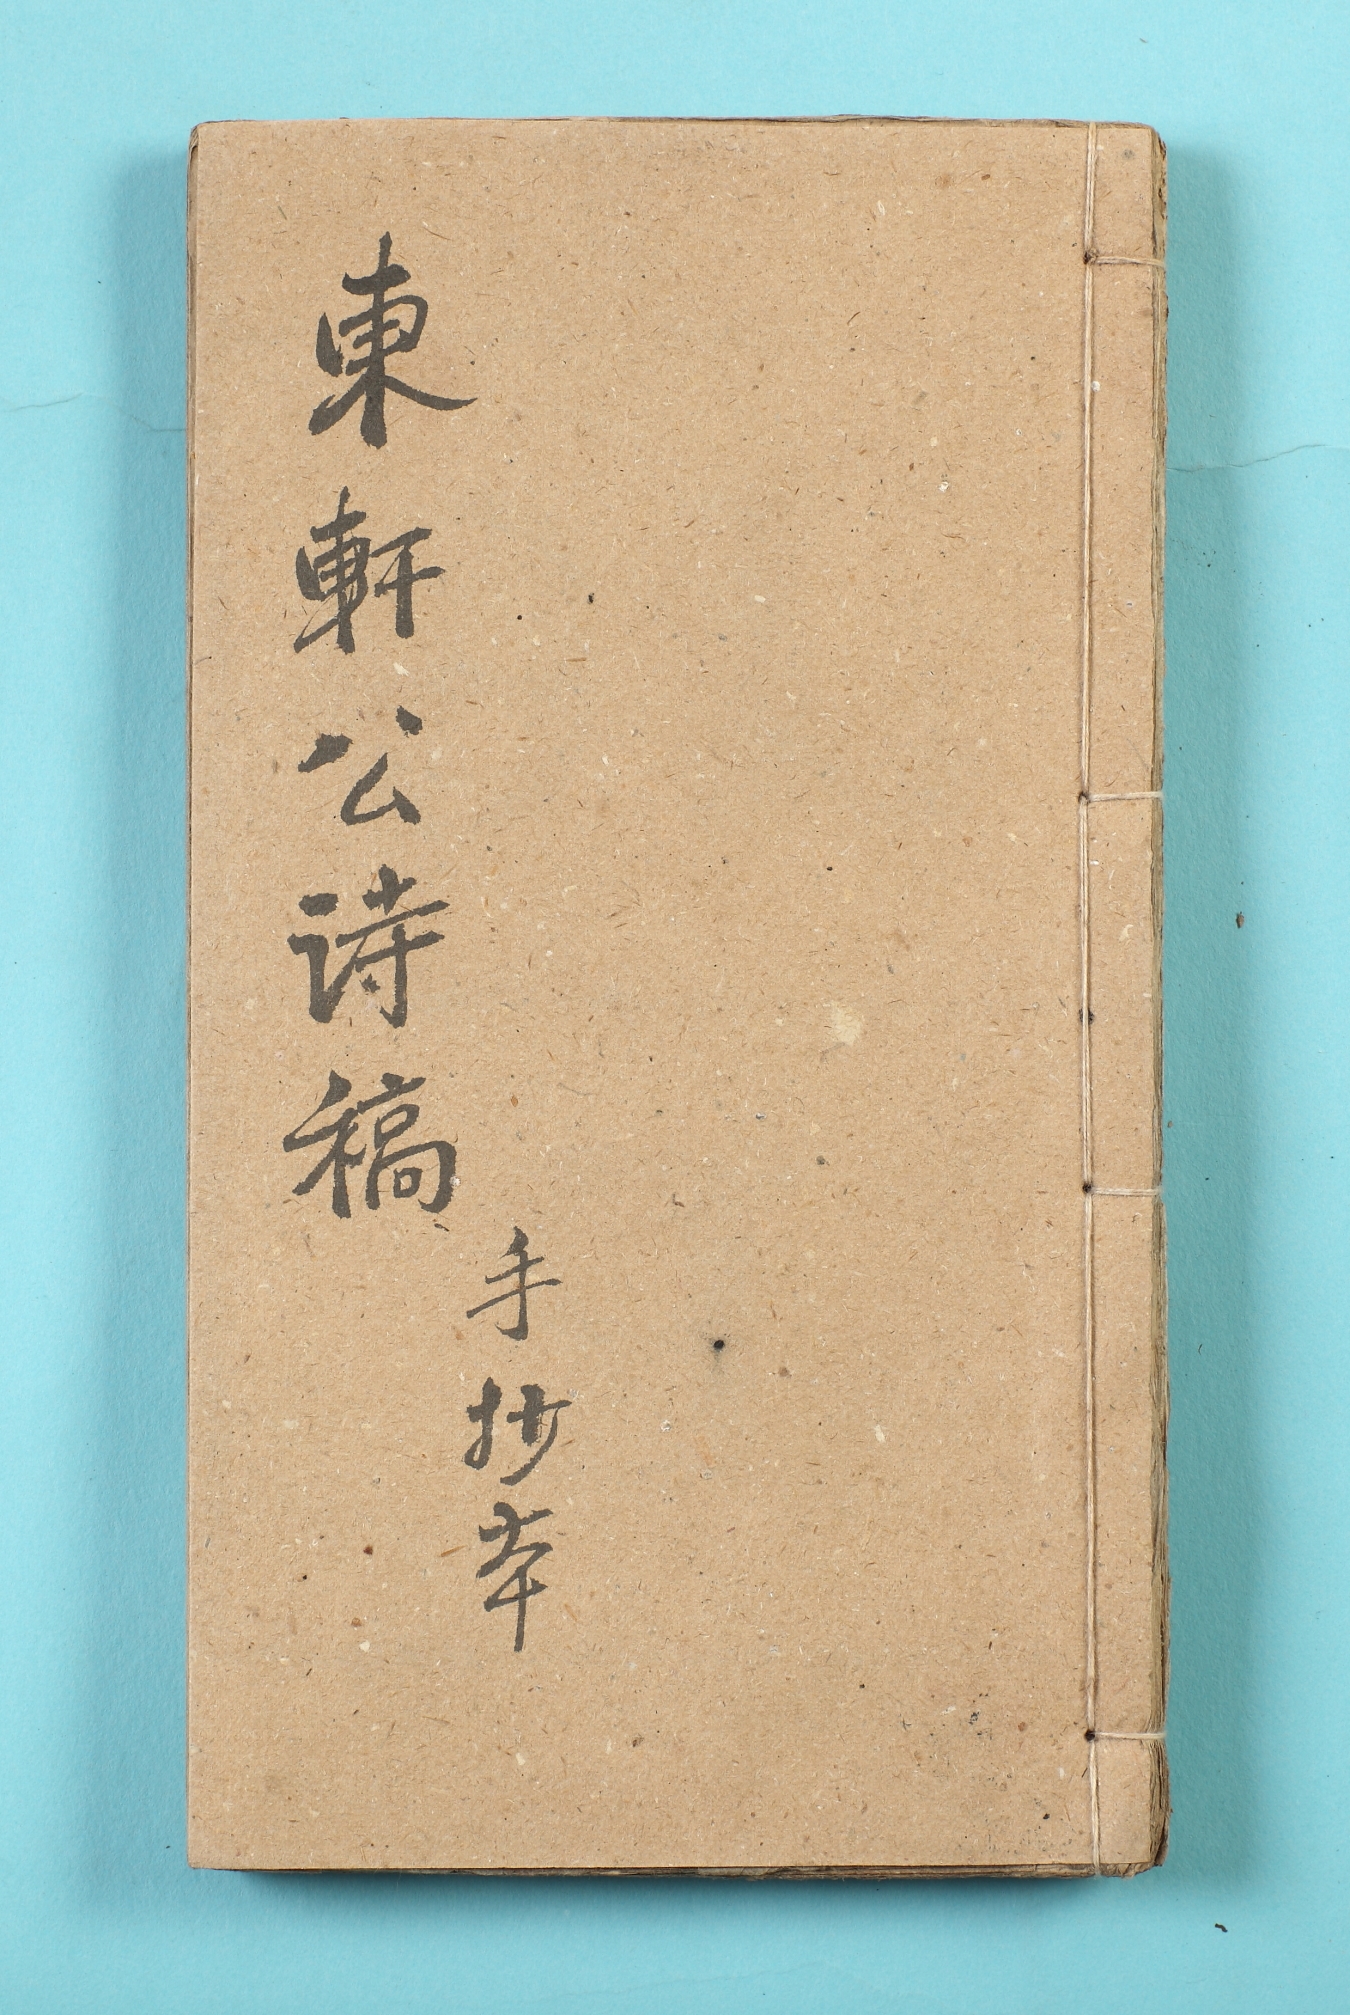 東軒公诗稿
手抄本